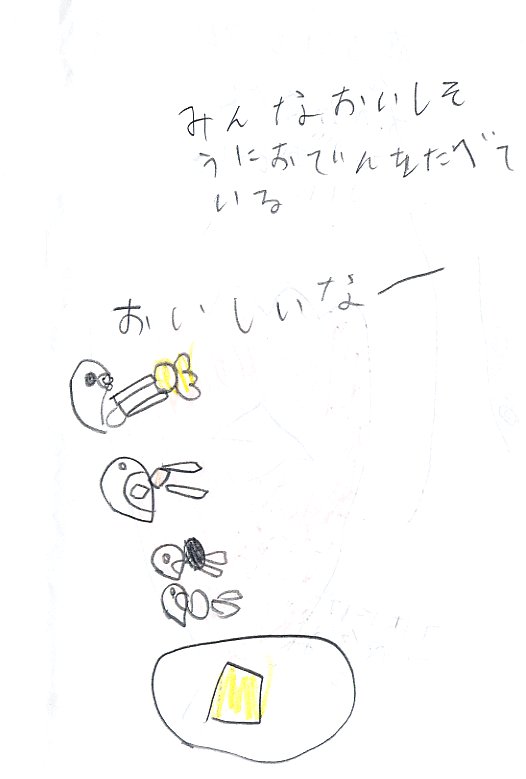 みんなおいしそ
うにおでんをたべて
いる
おいしいなー